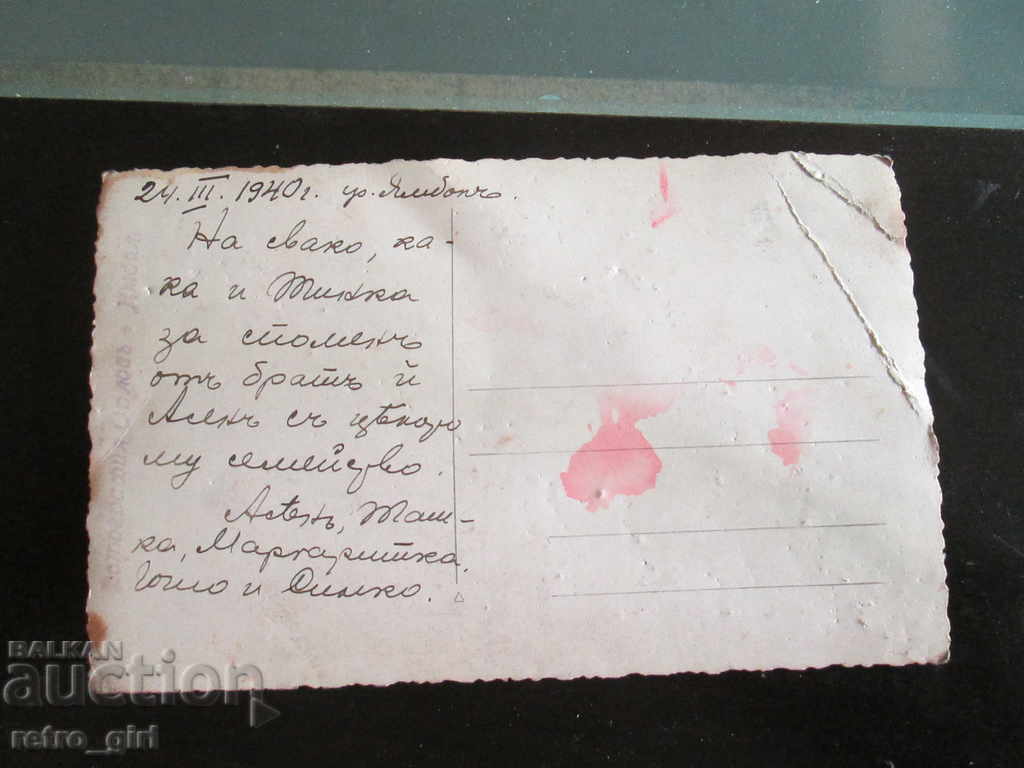 24. III. 1940 г. гр. Ямболъ.
На свако, ка-
ка и Тинка
за споменъ
отъ братъ й
Асенъ съ цѣлото
му семейство.
Асѣнъ, Таш-
ка, Маргаритка.
и Динко.
BALKAN
auction
retro_girl